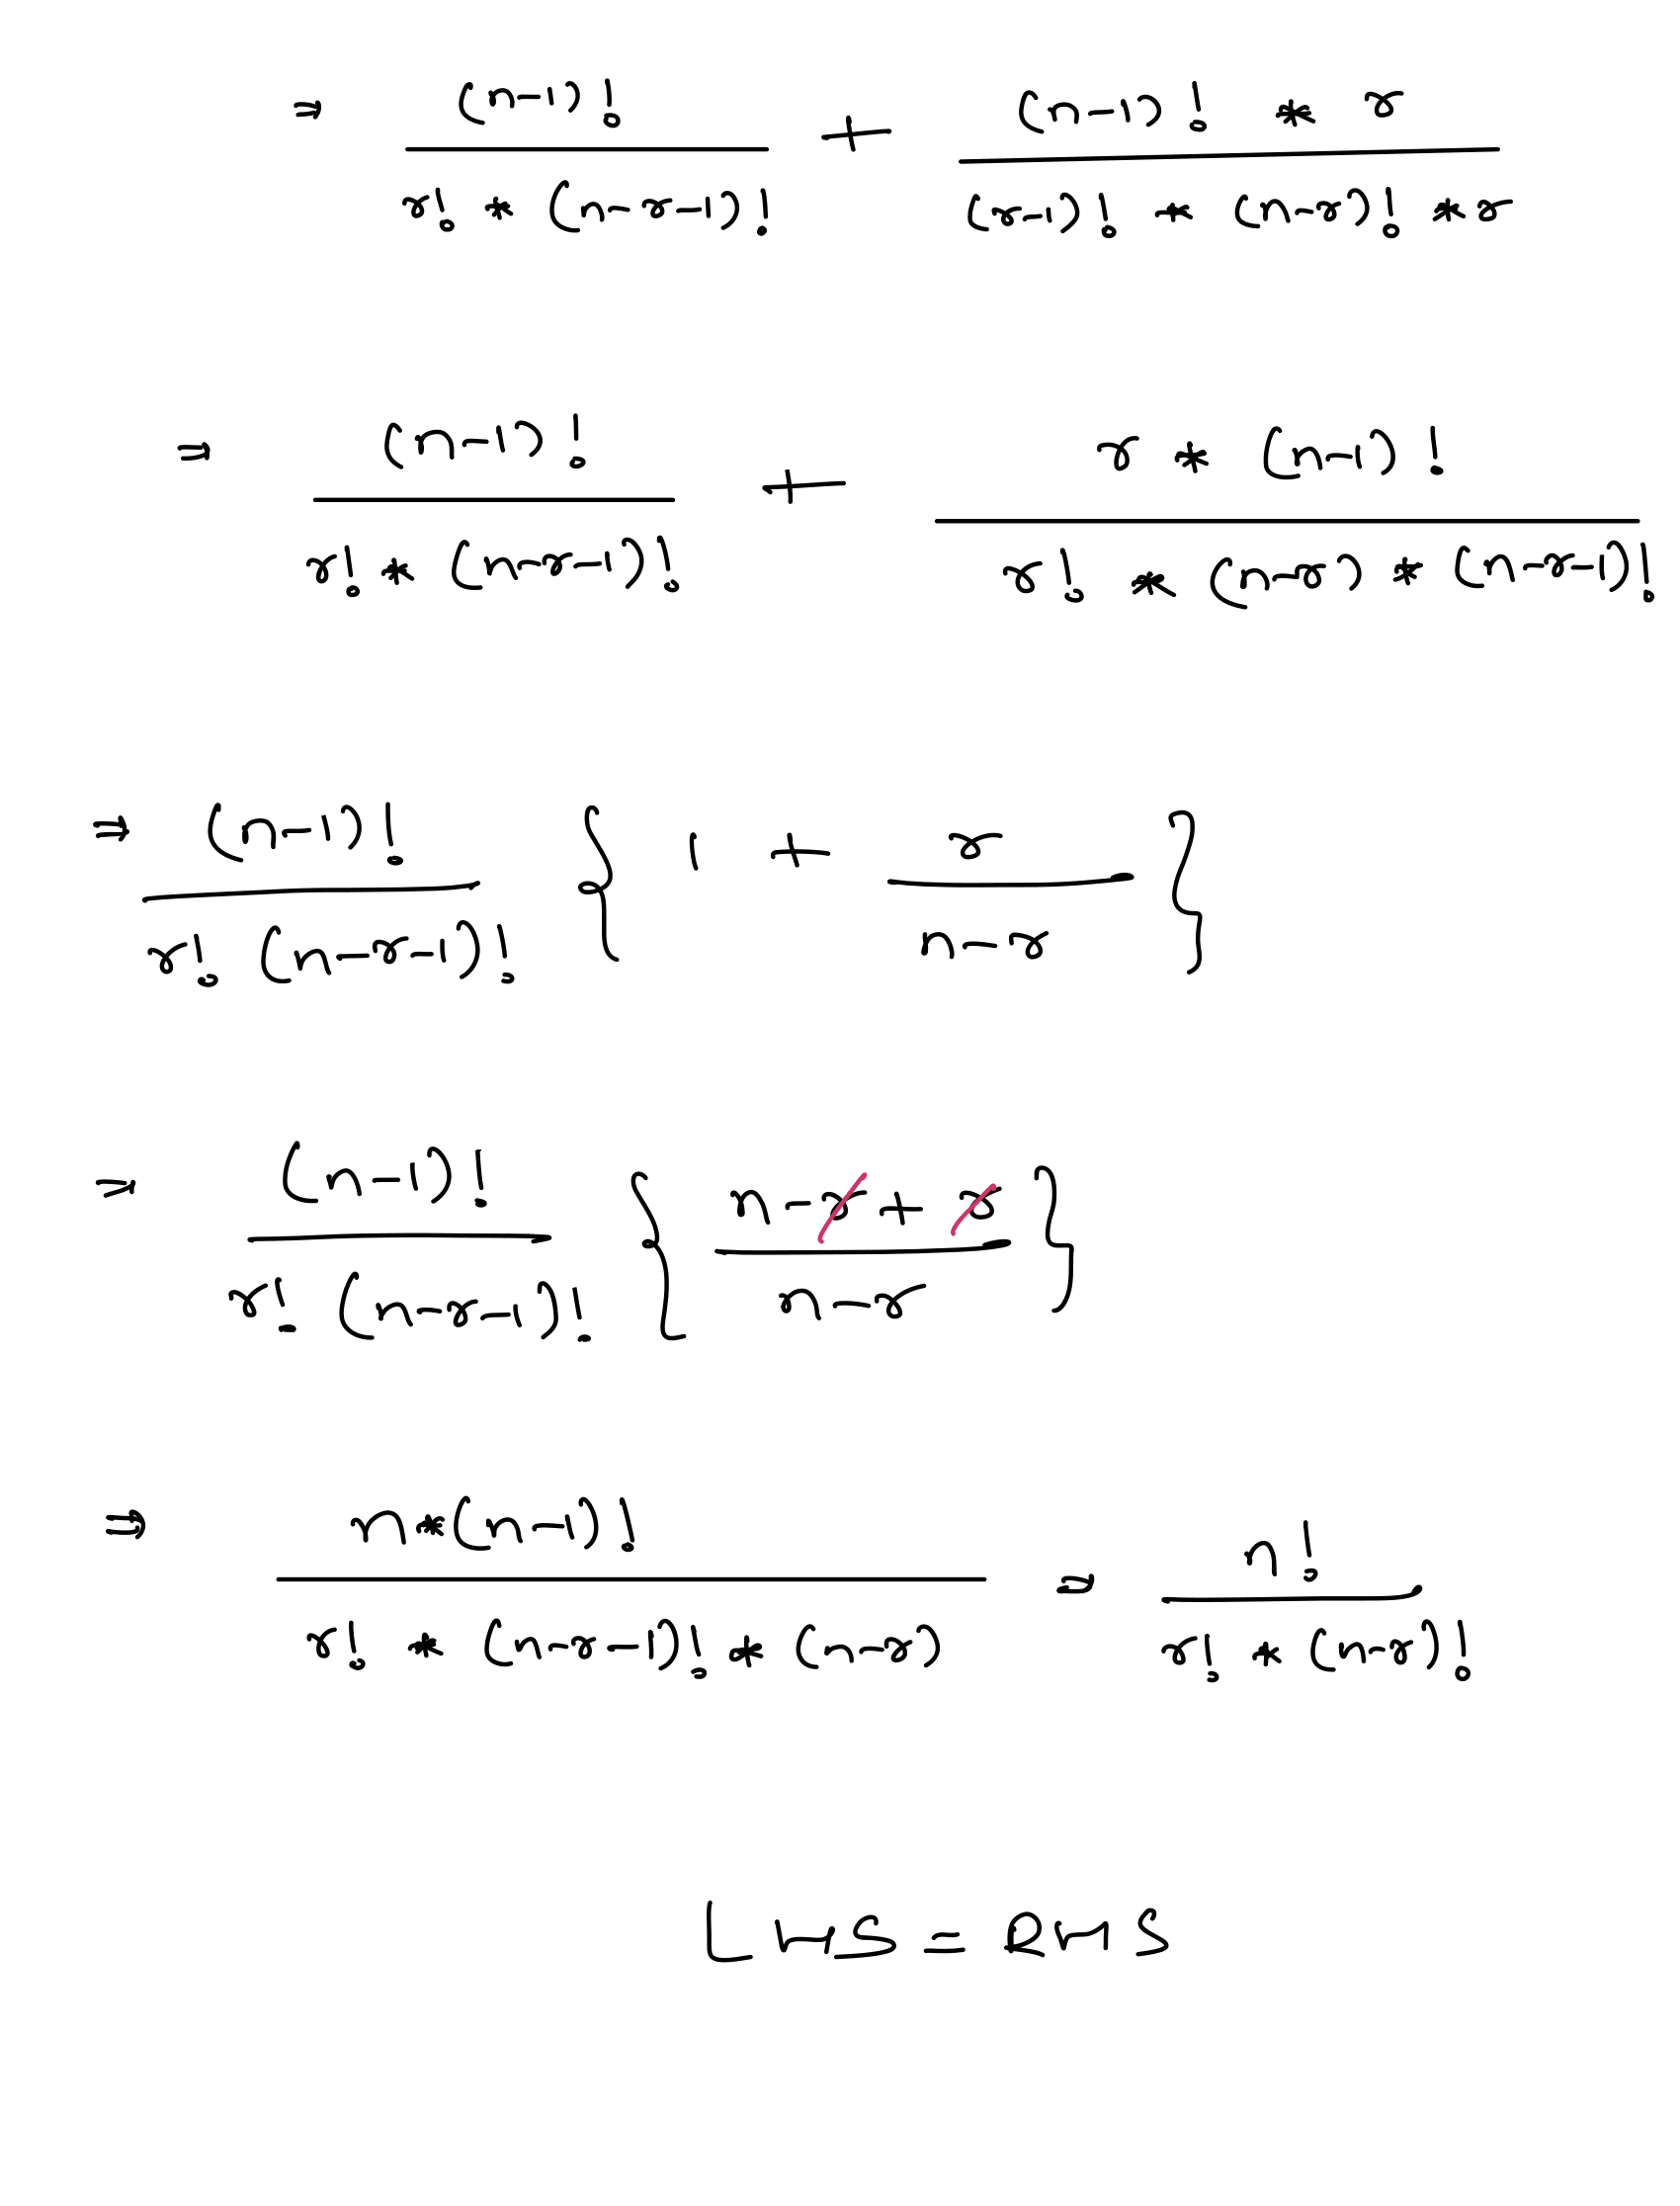 ⇒ (n-1)! / r! * (n-r-1)! + (n-1)! * r / (r-1)! * (n-r)! * r
⇒ (n-1)! / r! * (n-r-1)! + r * (n-1)! / r! * (n-r) * (n-r-1)!
⇒ (n-1)! / r! (n-r-1)! { 1 + r / n-r }
⇒ (n-1)! / r! (n-r-1)! { n-r+r / n-r }
⇒ n*(n-1)! / r! * (n-r-1)! * (n-r) ⇒ n! / r! * (n-r)!
LHS = RHS